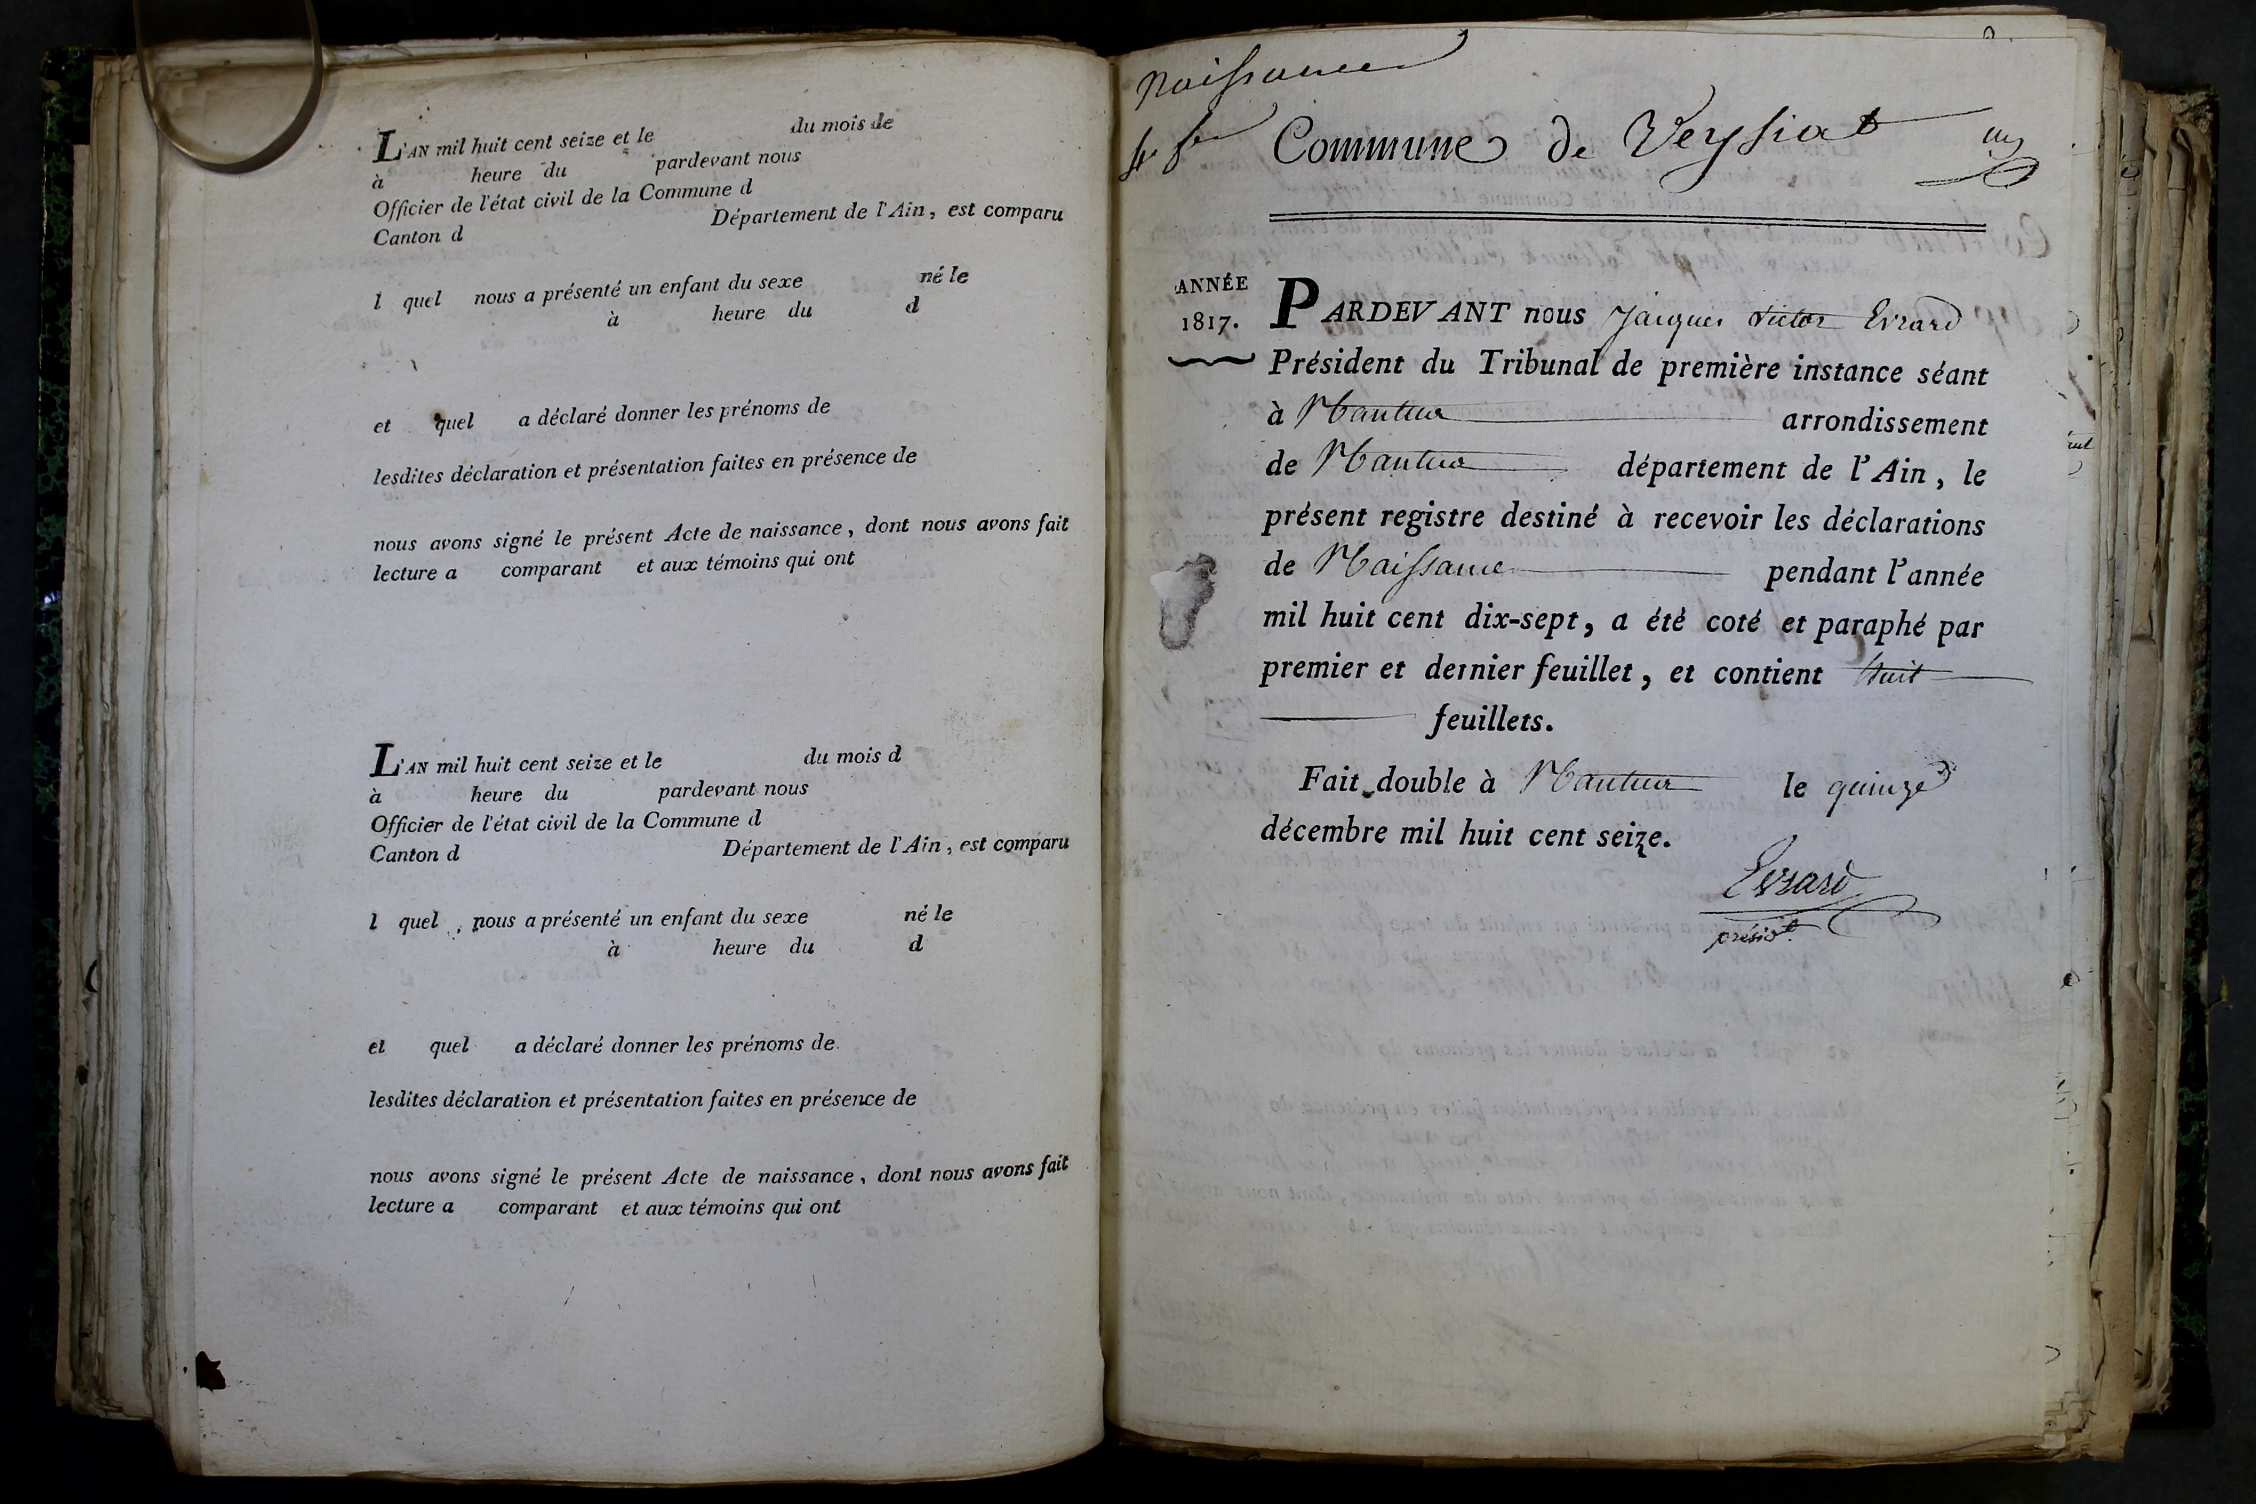 L'AN mil huit cent seize et le du mois de
à heure du pardevant nous
Officier de l'état civil de la Commune d
Canton d Département de l'Ain, est comparu
l quel nous a présenté un enfant du sexe né le
à heure du d
et quel a déclaré donner les prénoms de
lesdites déclaration et présentation faites en présence de
nous avons signé le présent Acte de naissance, dont nous avons fait
lecture a comparant et aux témoins qui ont
L'AN mil huit cent seize et le du mois d
à heure du pardevant nous
Officier de l'état civil de la Commune d
Canton d Département de l'Ain, est comparu
l quel, nous a présenté un enfant du sexe né le
à heure du d
et quel a déclaré donner les prénoms de
lesdites déclaration et présentation faites en présence de
nous avons signé le présent Acte de naissance, dont nous avons fait
lecture a comparant et aux témoins qui ont
Naissance
Commune de Veysiat
ANNÉE
1817.
PARDEVANT nous Jacques Victor Evrard
Président du Tribunal de première instance séant
à Nantua arrondissement
de Nantua département de l'Ain, le
présent registre destiné à recevoir les déclarations
de Naissance pendant l'année
mil huit cent dix-sept, a été coté et paraphé par
premier et dernier feuillet, et contient huit
feuillets.
Fait double à Nantua le quinze
décembre mil huit cent seize.
Evrard
présidt.